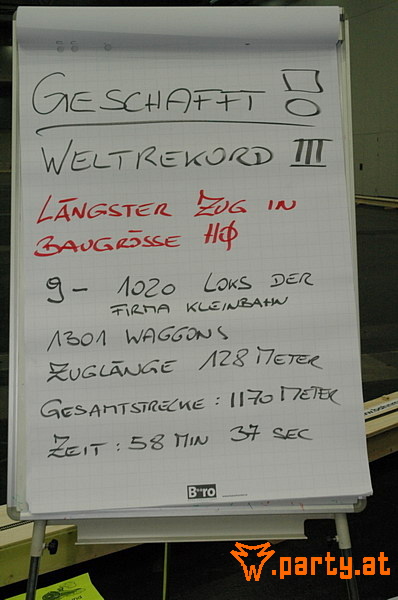 GESCHAFFT !
WELTREKORD III
LÄNGSTER ZUG IN
BAUGRÖSSE HØ
9 - 1020 LOKS DER
FIRMA KLEINBAHN
1301 WAGGONS
ZUGLÄNGE 128 METER
GESAMTSTRECKE : 1170 METER
ZEIT : 58 MIN 37 SEC
Büro
w.party.at